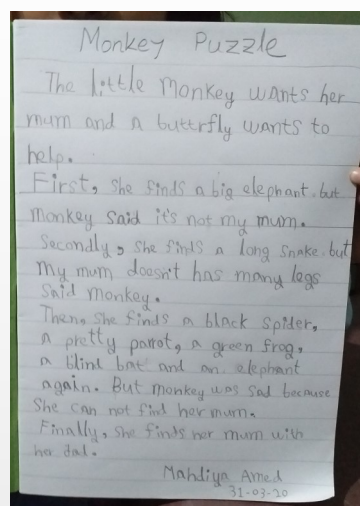 Monkey Puzzle
The little monkey wants her
mum and a buttrfly wants to
help.
First, she finds a big elephant. but
monkey said it's not my mum.
Secondly, she finds a long snake. but
my mum doesn't has many legs
said monkey.
Then, she finds a black spider,
a pretty parrot, a green frog,
a blind bat and an elephant
again. But monkey was sad because
she can not find her mum.
Finally, she finds her mum with
her dad.
Mahdiya Amed
31-03-20